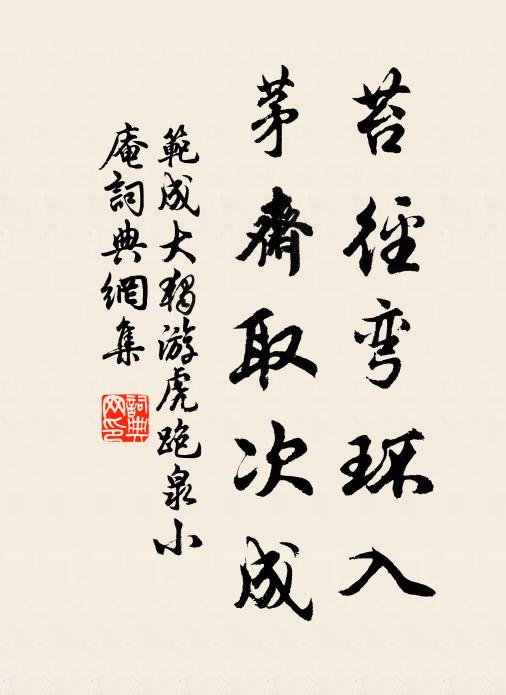 苔径弯环入
茅斋取次成
範成大獨游虎跑泉小
庵詞典網集
詞典
网印